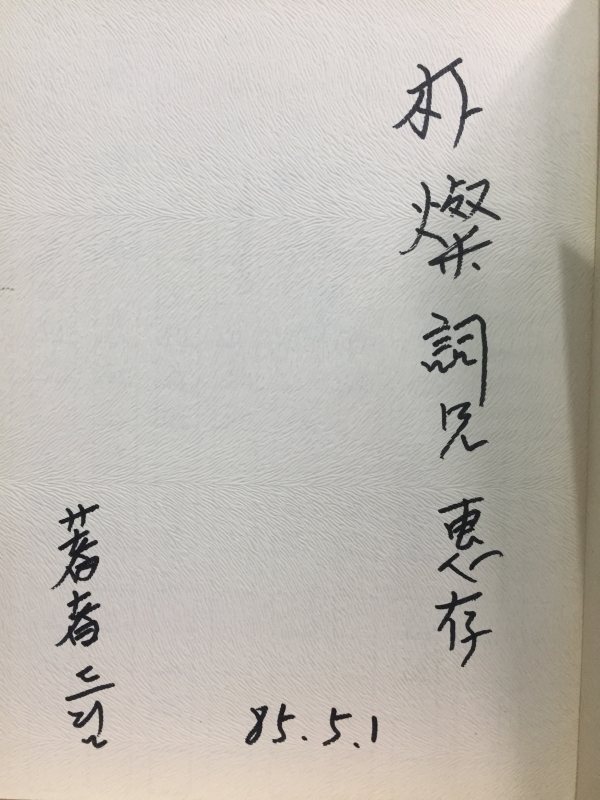 朴燦詞兄惠存
85.5.1
著者드림